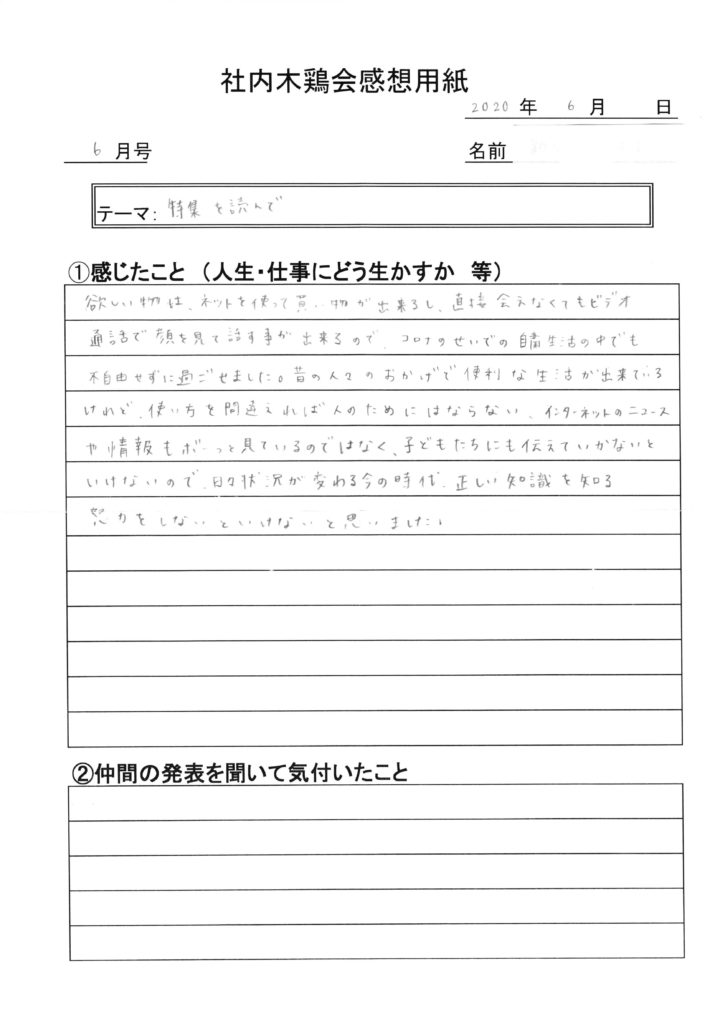 社内木鶏会感想用紙
2020 年 6 月 日
6 月号 名前
テーマ: 特集を読んで
①感じたこと (人生・仕事にどう生かすか 等)
欲しい物は、ネットを使って買い物が出来るし、直接会えなくてもビデオ
通話で顔を見て話す事が出来るので、コロナのせいでの自粛生活の中でも
不自由せずに過ごせました。昔の人々のおかげで便利な生活が出来ている
けれど、使い方を間違えれば人のためにはならない、インターネットのニュース
や情報もボーっと見ているのではなく、子どもたちにも伝えていかないと
いけないので、日々状況が変わる今の時代、正しい知識を知る
努力をしないといけないと思いました。
②仲間の発表を聞いて気付いたこと